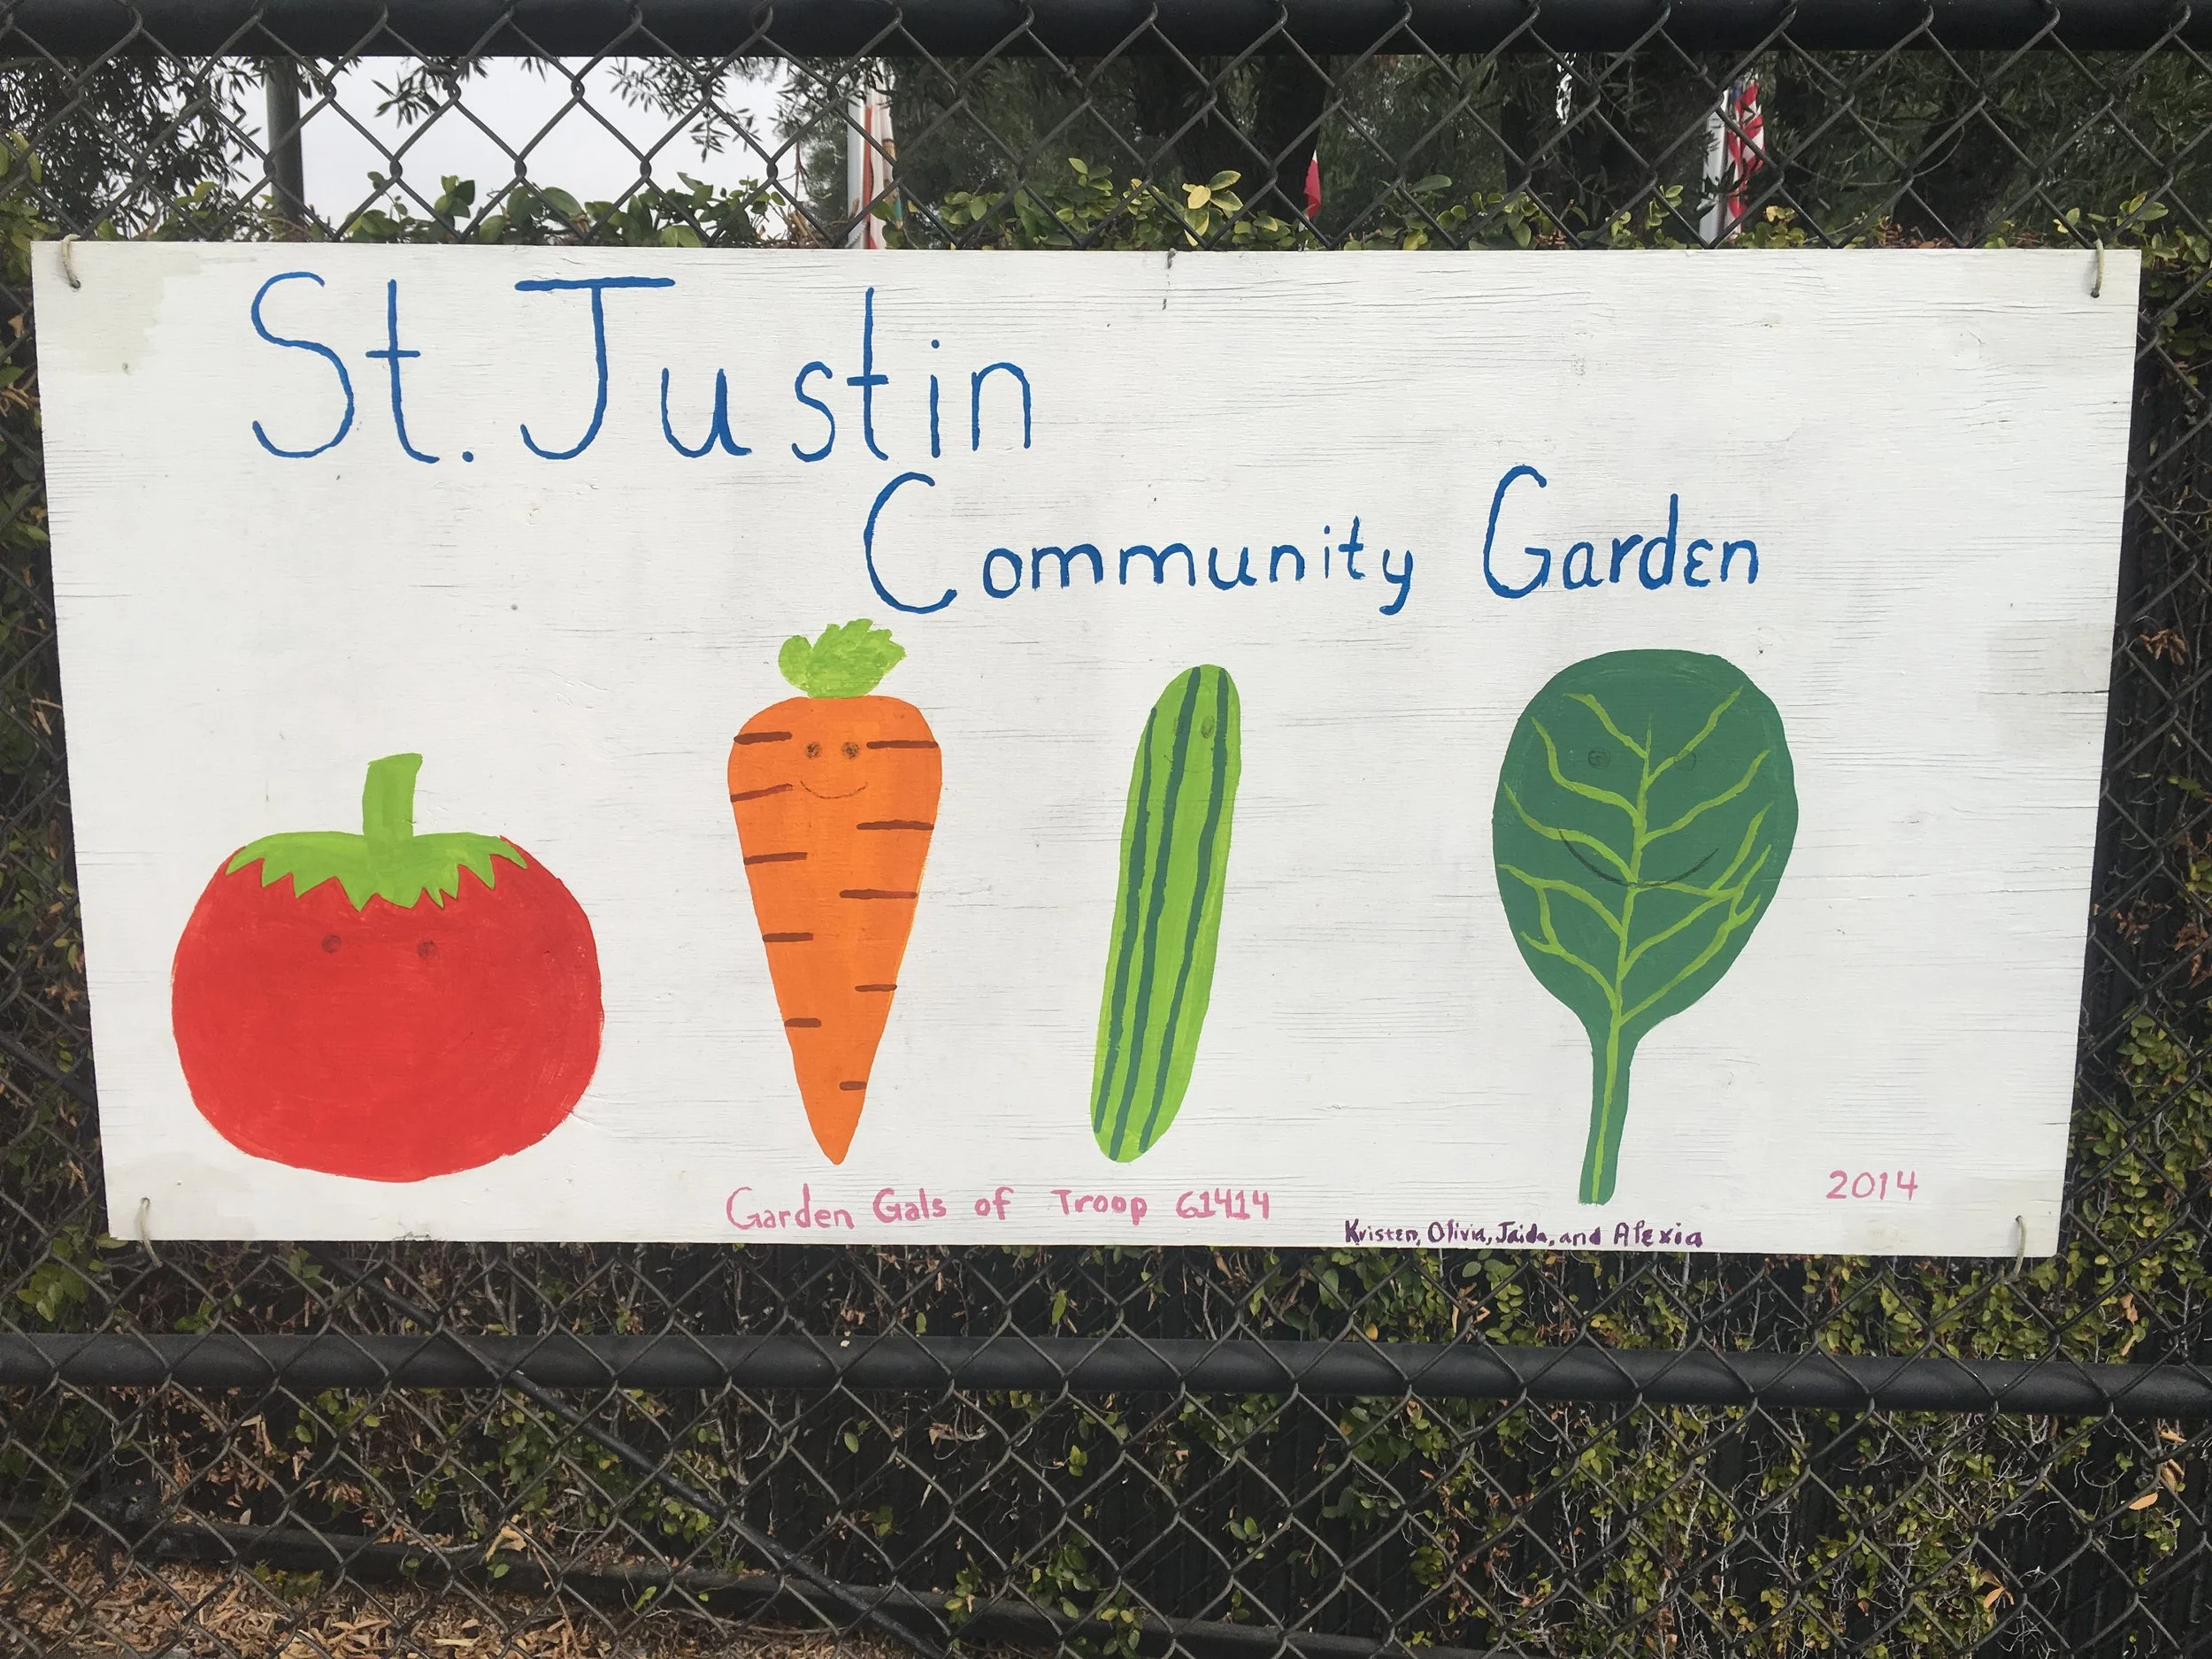 St. Justin
Community Garden
Garden Gals of Troop 61414
2014
Kristen, Olivia, Jaida, and Alexia